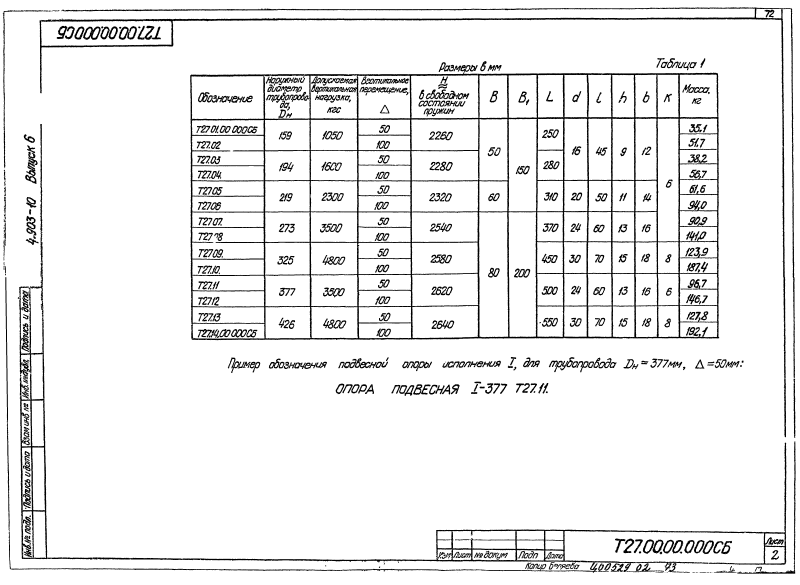 72
Т27.00.00.000СБ
Размеры в мм
Таблица 1
Обозначение | Наружный диаметр трубопровода, Dн | Допускаемая вертикальная нагрузка, кгс | Вертикальное перемещение, Δ | H ≈ в свободном состоянии пружин | B | B₁ | L | d | l | h | b | K | Масса, кг
Т27.01.00.000СБ | 159 | 1050 | 50 | 2260 | 50 | 150 | 250 | 16 | 45 | 9 | 12 | 6 | 35,1
Т27.02 | 100 | 51,7
Т27.03 | 194 | 1600 | 50 | 2280 | 280 | 38,2
Т27.04 | 100 | 56,7
Т27.05 | 219 | 2300 | 50 | 2320 | 60 | 310 | 20 | 50 | 11 | 14 | 61,6
Т27.06 | 100 | 94,0
Т27.07. | 273 | 3500 | 50 | 2540 | 80 | 200 | 370 | 24 | 60 | 13 | 16 | 90,9
Т27.08 | 100 | 141,0
Т27.09. | 325 | 4800 | 50 | 2580 | 450 | 30 | 70 | 15 | 18 | 8 | 123,9
Т27.10. | 100 | 187,4
Т27.11 | 377 | 3500 | 50 | 2620 | 500 | 24 | 60 | 13 | 16 | 6 | 96,7
Т27.12 | 100 | 146,7
Т27.13 | 426 | 4800 | 50 | 2640 | 550 | 30 | 70 | 15 | 18 | 8 | 127,8
Т27.14.00.000СБ | 100 | 192,1
Пример обозначения подвесной опоры исполнения I, для трубопровода Dн=377мм, Δ=50мм:
ОПОРА ПОДВЕСНАЯ I-377 Т27.11.
4.903-10 Выпуск 6
Инв.№ подл. Подпись и дата Взам инв № Инв.№ дубл. Подпись и дата
Изм Лист № докум Подп Дата
Т27.00.00.000СБ
Лист
2
Копир 400529 02 73